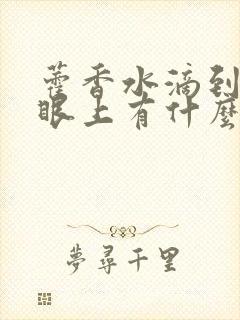 藿香水滴到
眼上有什麼
夢尋千里